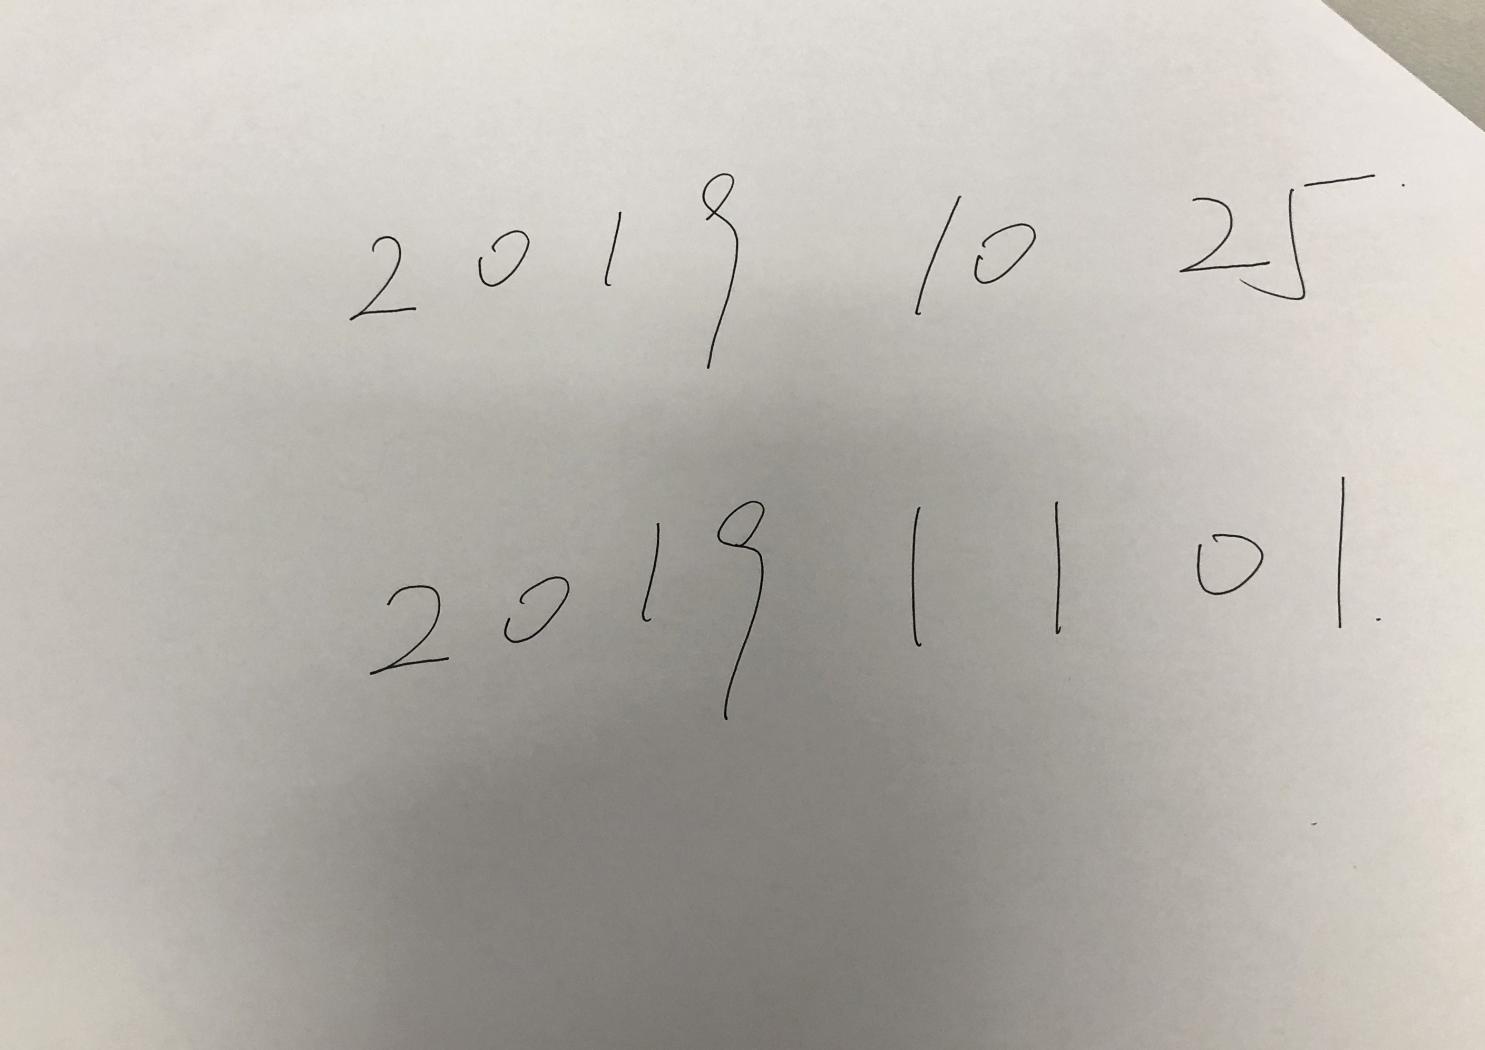 2019 10 25.
2019 11 01.